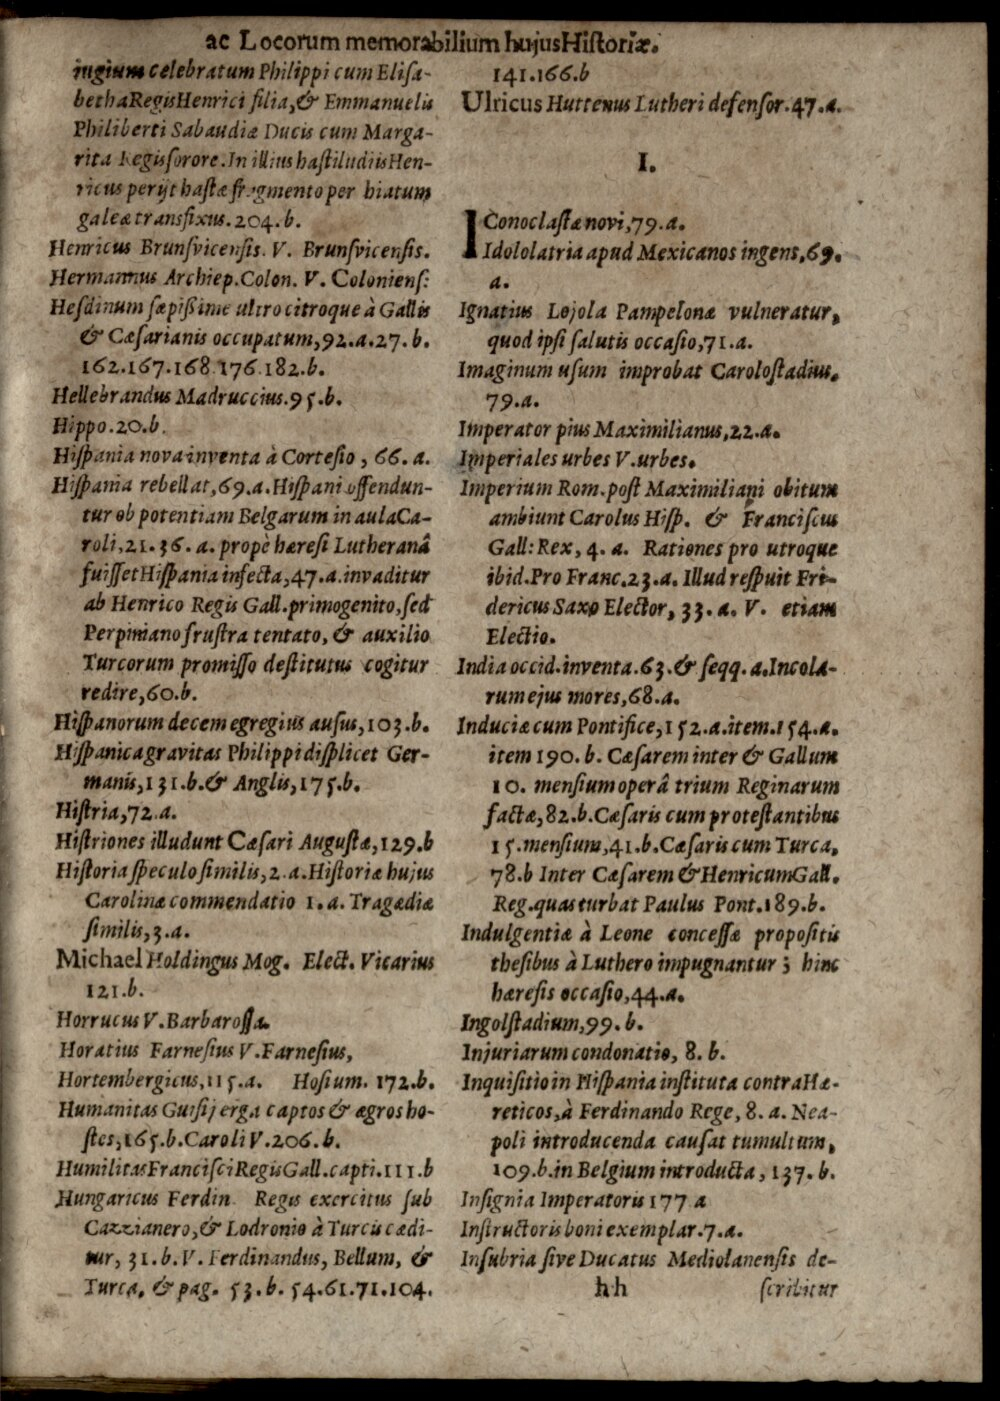 ac Locorum memorabilium hujus Historiæ.
ingium celebratum Philippi cum Elisa-
betha Regis Henrici filia, & Emmanuelis
Philiberti Sabaudiæ Ducis cum Marga-
rita Regis sorore. In illius hastiludiis Hen-
ricus perijt hastæ fragmento per hiatum
galeæ transfixus. 204. b.
Henricus Brunsvicensis. V. Brunsvicensis.
Hermannus Archiep. Colon. V. Coloniens:
Hesdinum sæpißime ultro citroque à Gallis
& Cæsarianis occupatum, 92. a. 27. b.
162. 167. 168. 176. 182. b.
Hellebrandus Madruccius. 95. b.
Hippo. 20. b.
Hispania nova inventa à Cortesio, 66. a.
Hispania rebellat, 69. a. Hispani offendun-
tur ob potentiam Belgarum in aula Ca-
roli, 21. 36. a. propè hæresi Lutheranâ
fuisset Hispania infecta, 47. a. invaditur
ab Henrico Regis Gall. primogenito, sed
Perpiniano frustra tentato, & auxilio
Turcorum promisso destitutus cogitur
redire, 60. b.
Hispanorum decem egregius ausus, 103. b.
Hispanica gravitas Philippi displicet Ger-
manis, 131. b. & Anglis, 175. b.
Histria, 72. a.
Histriones illudunt Cæsari Augustæ, 129. b
Historia speculo similis, 2. a. Historiæ hujus
Carolinæ commendatio 1. a. Tragædiæ
similis, 3. a.
Michael Holdingus Mog. Elect. Vicarius
121. b.
Horrucus V. Barbarossa.
Horatius Farnesius V. Farnesius,
Hortembergicus, 115. a. Hosium. 172. b.
Humanitas Guisij erga captos & ægros ho-
stes, 165. b. Caroli V. 206. b.
Humilitas Francisci Regis Gall. capti. 111. b
Hungaricus Ferdin. Regis exercitus sub
Cazzianero, & Lodronio à Turcis cædi-
tur, 31. b. V. Ferdinandus, Bellum, &
Turca, & pag. 53. b. 54. 61. 71. 104.
141. 166. b
Ulricus Huttenus Lutheri defensor. 47. a.
I.
IConoclastæ novi, 79. a.
Idololatria apud Mexicanos ingens, 69.
a.
Ignatius Lojola Pampelonæ vulneratur,
quod ipsi salutis occasio, 71. a.
Imaginum usum improbat Carolostadius.
79. a.
Imperator pius Maximilianus, 22. a.
Imperiales urbes V. urbes.
Imperium Rom. post Maximiliani obitum
ambiunt Carolus Hisp. & Franciscus
Gall: Rex, 4. a. Rationes pro utroque
ibid. Pro Franc. 23. a. Illud respuit Fri-
dericus Saxo Elector, 33. a. V. etiam
Electio.
India occid. inventa. 63. & seqq. a. Incola-
rum ejus mores, 68. a.
Induciæ cum Pontifice, 152. a. item. 154. a.
item 190. b. Cæsarem inter & Gallum
10. mensium operâ trium Reginarum
factæ, 82. b. Cæsaris cum protestantibus
15. mensium, 41. b. Cæsaris cum Turca,
78. b Inter Cæsarem & Henricum Gall.
Reg. quas turbat Paulus Pont. 189. b.
Indulgentiæ à Leone concessæ propositis
thesibus à Luthero impugnantur; hinc
hæresis occasio, 44. a.
Ingolstadium, 99. b.
Injuriarum condonatio, 8. b.
Inquisitio in Hispania instituta contra Hæ-
reticos, à Ferdinando Rege, 8. a. Nea-
poli introducenda causat tumultum,
109. b. in Belgium introducta, 137. b.
Insignia Imperatoris 177 a
Instructoris boni exemplar. 7. a.
Insubria sive Ducatus Mediolanensis de-
hh scribitur